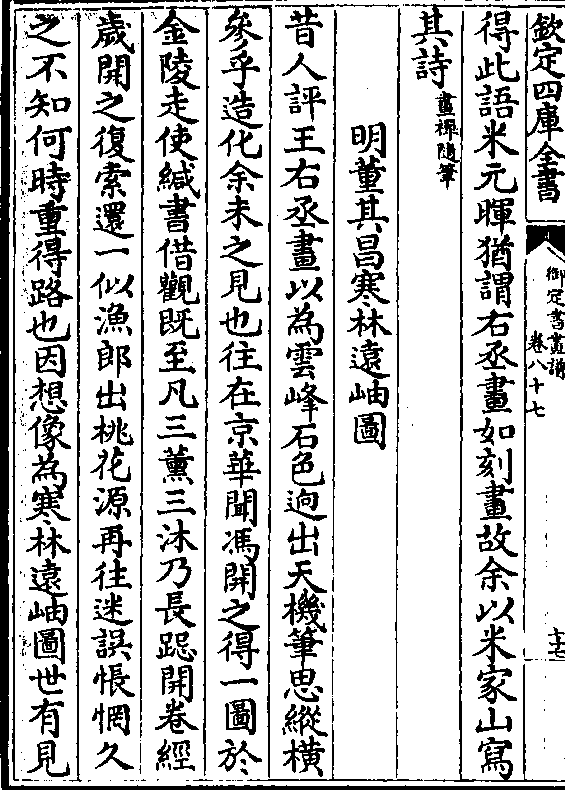 欽定四庫全書
御定書畫譜
卷八十七
得此語米元暉猶謂右丞畫如刻畫故余以米家山寫
其詩畫禪隨筆
明董其昌寒林遠岫圖
昔人評王右丞畫以為雲峰石色逈出天機筆思縱横
參乎造化余未之見也往在京華聞馮開之得一圖於
金陵走使緘書借觀既至凡三薰三沐乃長跽開卷經
歲開之復索還一似漁郎出桃花源再往迷誤悵惘久
之不知何時重得路也因想像為寒林遠岫圖世有見